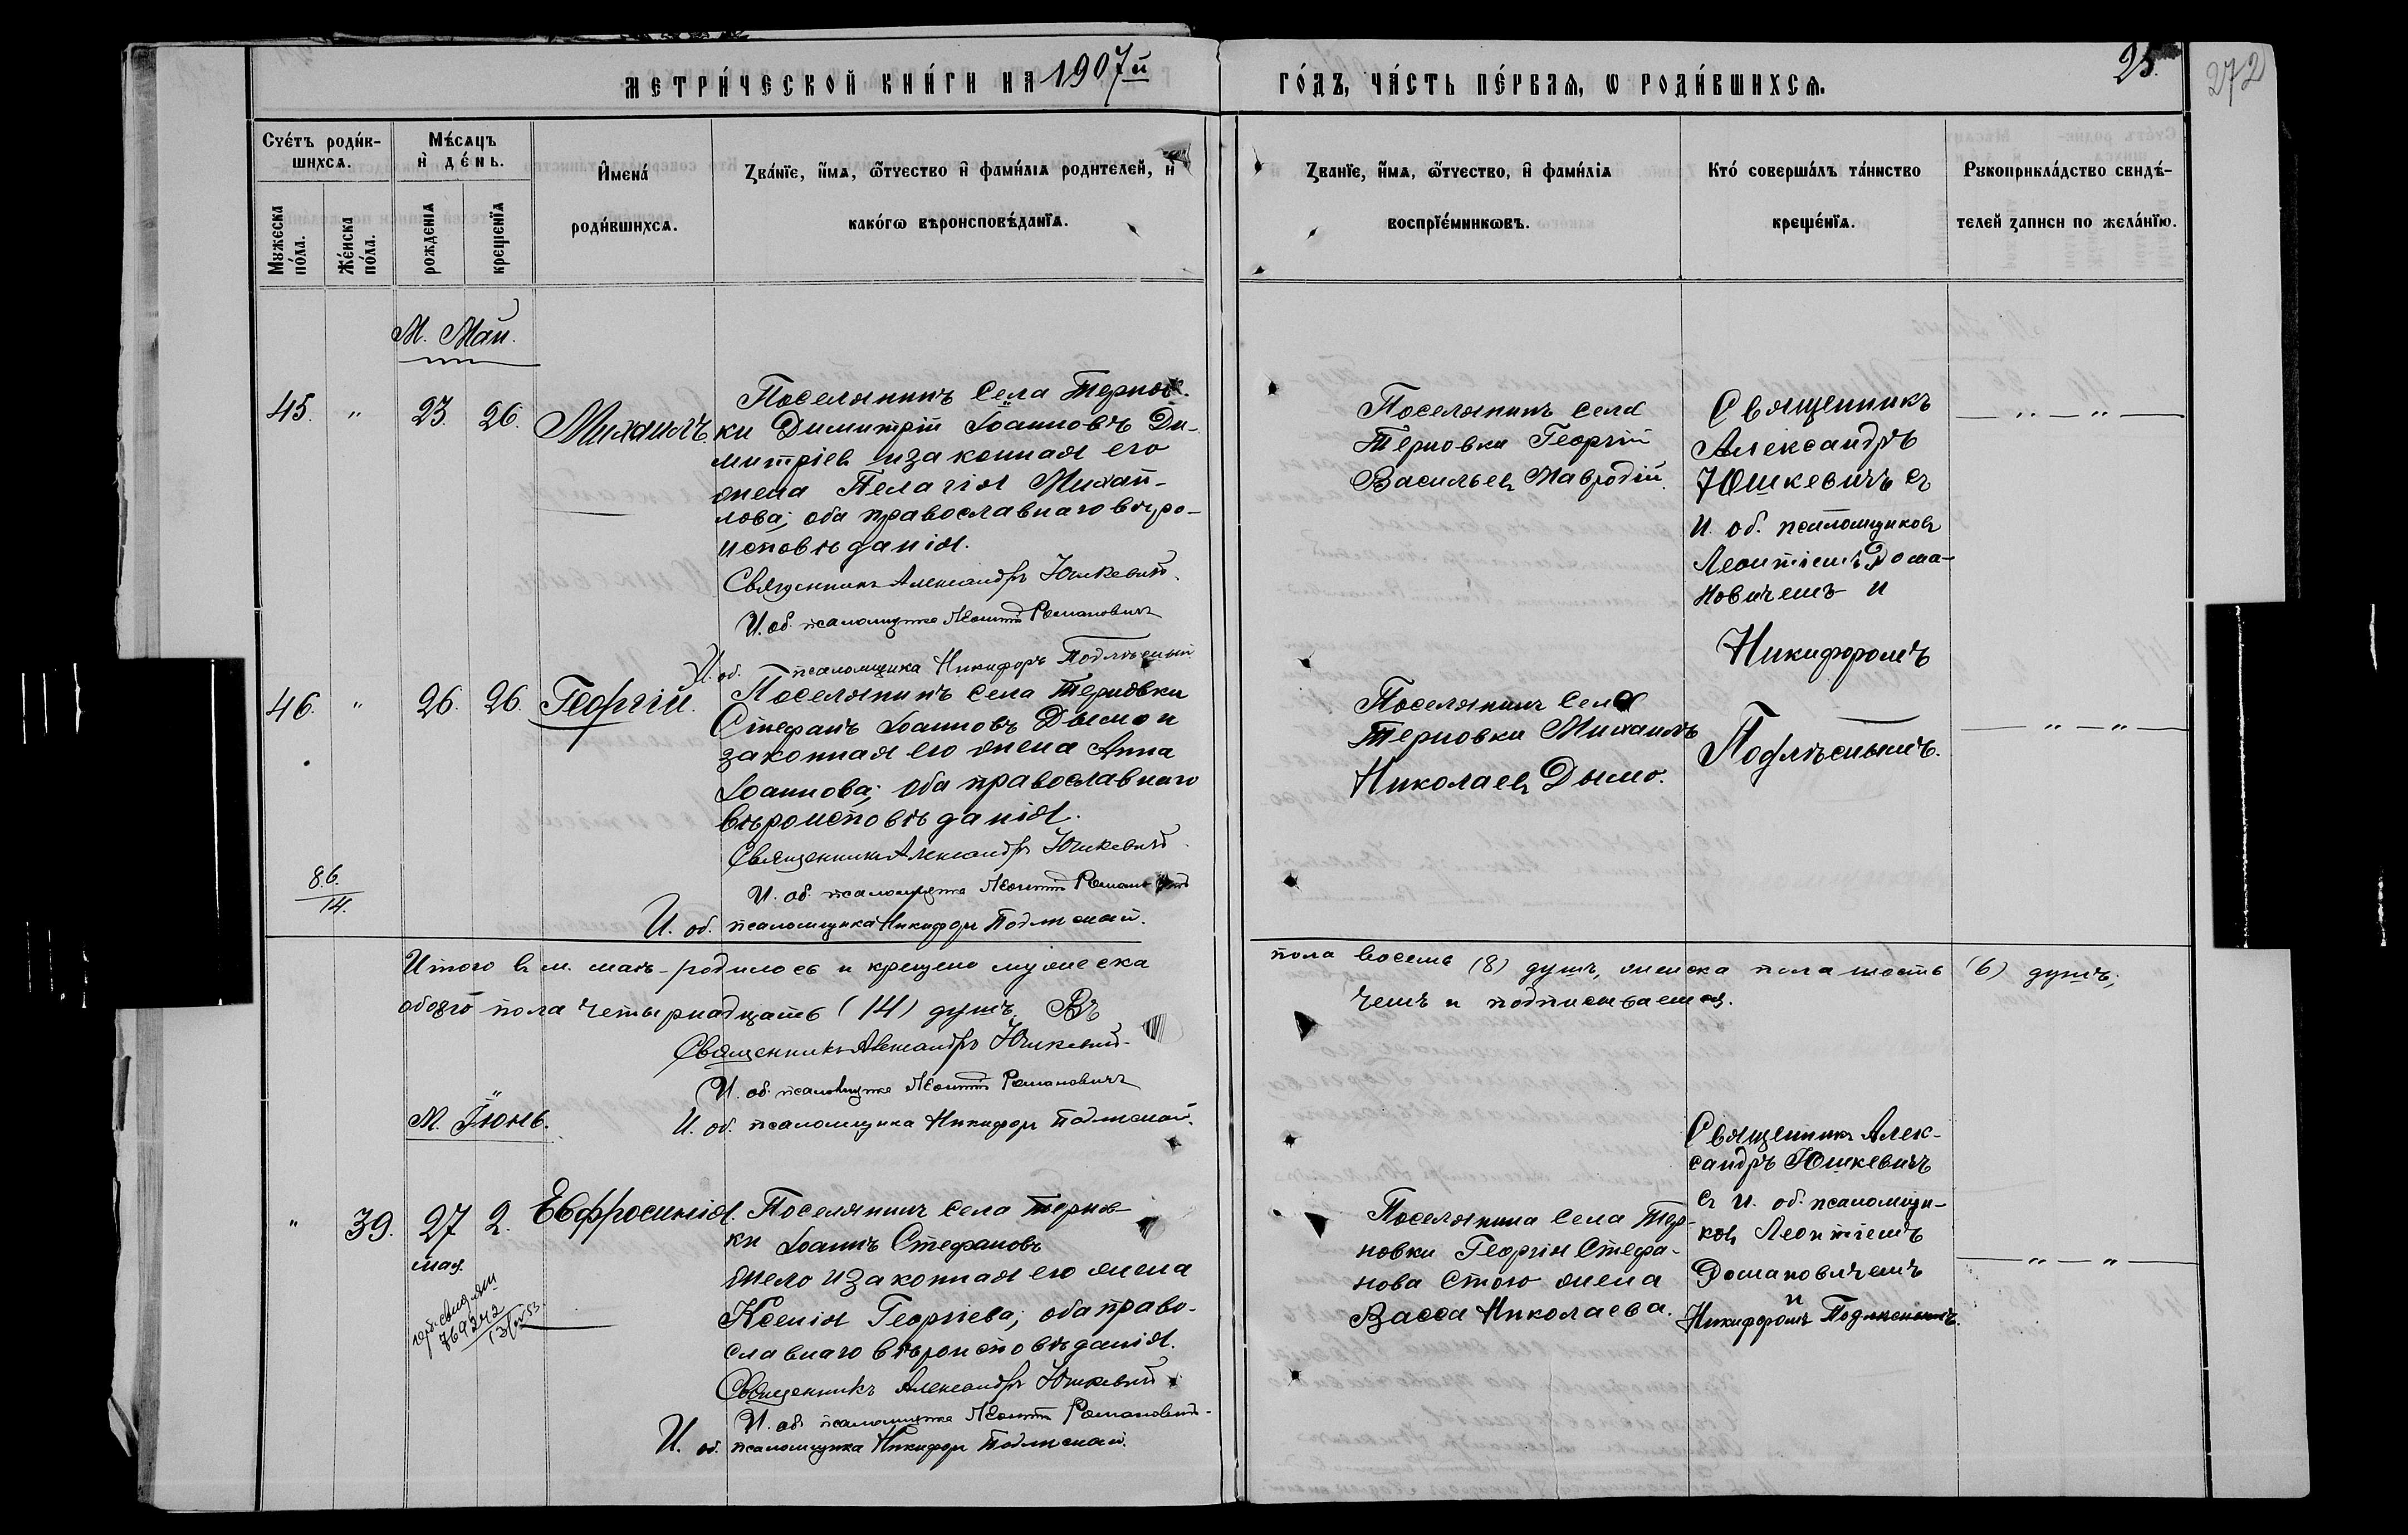 МЕТРИ́ЧЕСКОЙ КНИ́ГИ НА 1907й ГО́ДЪ, ЧА́СТЬ ПЕ́РВАѦ, Ѡ РОДИ́ВШИХСѦ.
25.
272
Сче́тъ роди́вшихсѧ.
Мꙋжеска по́ла.
Же́нска по́ла.
Мѣ́сѧцъ и҆ де́нь.
рожденїѧ
крещенїѧ
И҆мена́ роди́вшихсѧ.
Зва́нїе, и҆́мѧ, ѻ҆́тчество и҆ фами́лїѧ родителей, и҆
како́гѡ вѣроисповѣ́данїѧ.
Зва́нїе, и҆́мѧ, ѻ҆́тчество, и҆ фами́лїѧ
воспрїе́мникѡвъ.
Кто́ соверша́лъ та́инство
креще́нїѧ.
Рꙋкоприкла́дство свидѣ́-
телей записи по жела́нїю.
М. Май.
45. " 23. 26. Михаилъ.
Поселянинъ села Тернов-
ки Димитрій Іоанновъ Ди-
митріев и законная его
жена Пелагія Михай-
лова; оба православнаго въро-
исповѣданія.
Священникъ Александръ Юшкевичъ.
И. об. псаломщика Леонтій Романовичъ
И. об. псаломщика Никифоръ Подлѣсный
Поселянинъ села
Терновки Георгій
Васильевъ Мавродій.
Священникъ
Александръ
Юшкевичъ съ
и. об. псаломщиковъ
Леонтіемъ Рома-
новичемъ и
Никифоромъ
Подлѣснымъ.
— " — " —
46. " 26. 26. Георгій.
Поселянинъ села Терновки
Стефанъ Іоанновъ Дымо и
законная его жена Анна
Іоаннова; оба православнаго
вѣроисповѣданія.
Священникъ Александръ Юшкевичъ
И. об. псаломщика Леонтій Романовичъ
И. об. псаломщика Никифоръ Подлѣсный.
Поселянинъ села
Терновки Михаилъ
Николаевъ Дымо.
— " — " —
8.6.
14.
Итого в м. маѣ-родилось и крещено мужеска пола восемь (8) душъ, женска пола шесть (6) душъ,
обоего пола четырнадцать (14) душъ. Въ чемъ и подписываемся.
Священникъ Александръ Юшкевичъ
И. об. псаломщика Леонтій Романовичъ
И. об. псаломщика Никифоръ Подлѣсный.
М. Іюнь.
" 39. 27 мая 2. Евфросинія.
769242
Поселянинъ села Тернов-
ки Іоаннъ Стефановъ
Жело и законная его жена
Ксенія Георгіева; оба право-
славнаго вѣроисповѣданія.
Священникъ Александръ Юшкевичъ
И. об. псаломщика Леонтій Романовичъ
И. об. псаломщика Никифоръ Подлѣсный.
Поселянина села Тер-
новки Георгія Стефа-
нова Стою жена
Васса Николаева.
Священникъ Алек-
сандръ Юшкевичъ
съ и. об. псаломщи-
ковъ Леонтіемъ
Романовичемъ
и
Никифоромъ Подлѣснымъ.
— " — " —